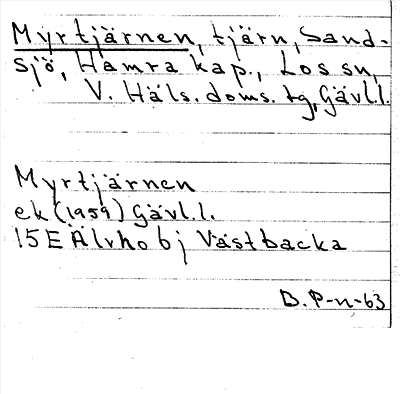 Myrtjärnen, tjärn, Sand-
sjö, Hamra kap., Los sn,
V. Häls. doms. tg, Gävl.l.
Myrtjärnen
ek (1959) Gävl.l.
15E Älvho 6j Västbacka
B. P-n-63